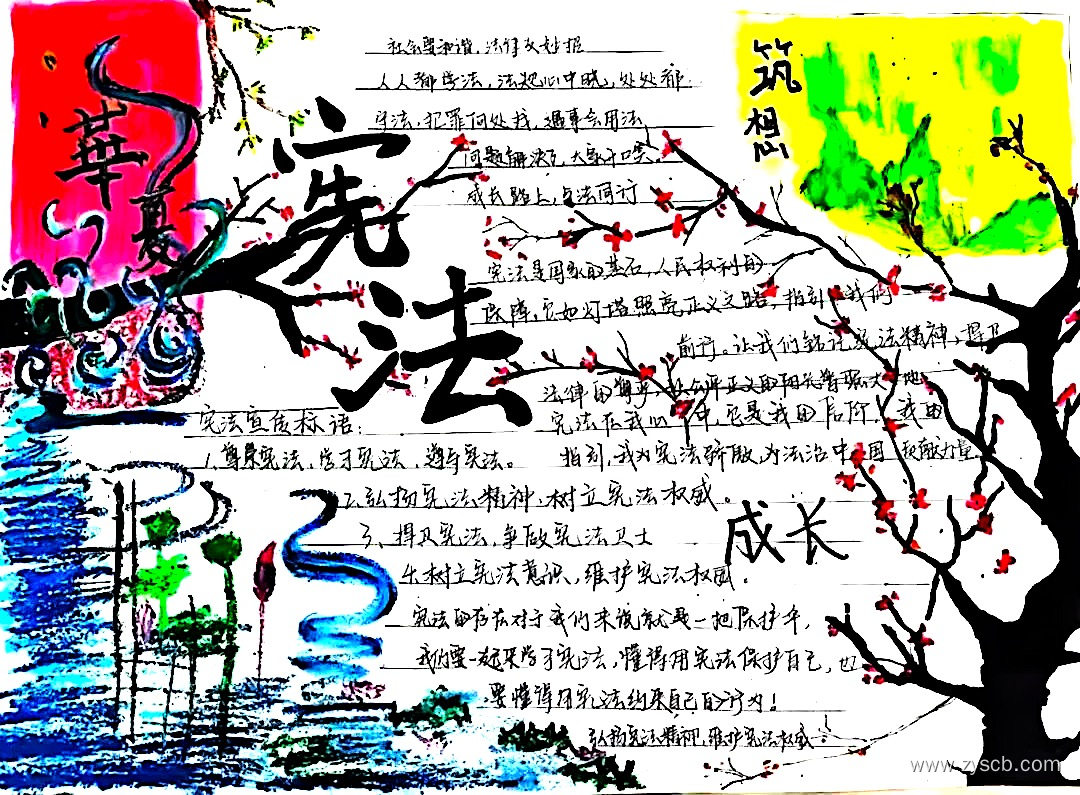 華夏
宪法
筑想
社会要和谐,法律父妙招
人人都学法,法规心中晓,处处都
守法,犯罪何处找,遇事会用法
问题解决了,大家开口笑,
成长路上,与法同行
宪法是国家的基石,人民权利的
保障,它如灯塔照亮正义之路,指引我们
前行。让我们铭记宪法精神,捍卫
法律的尊严,让公平正义的阳光普照大地
宪法在我心中,它是我的信仰!我的
指引,我为宪法骄傲,为法治中国贡献力量
宪法宣传标语:
1.尊崇宪法,学习宪法,遵守宪法。
2.弘扬宪法精神,树立宪法权威。
3、捍卫宪法,争做宪法卫士
4.树立宪法意识,维护宪法权威。
成长
宪法的存在对于我们来说就是一把保护伞,
我们要一起来学习宪法,懂得用宪法保护自己,也
要懂得用宪法约束自己的行为!
弘扬宪法精神,维护宪法权威!
www.zyscb.com